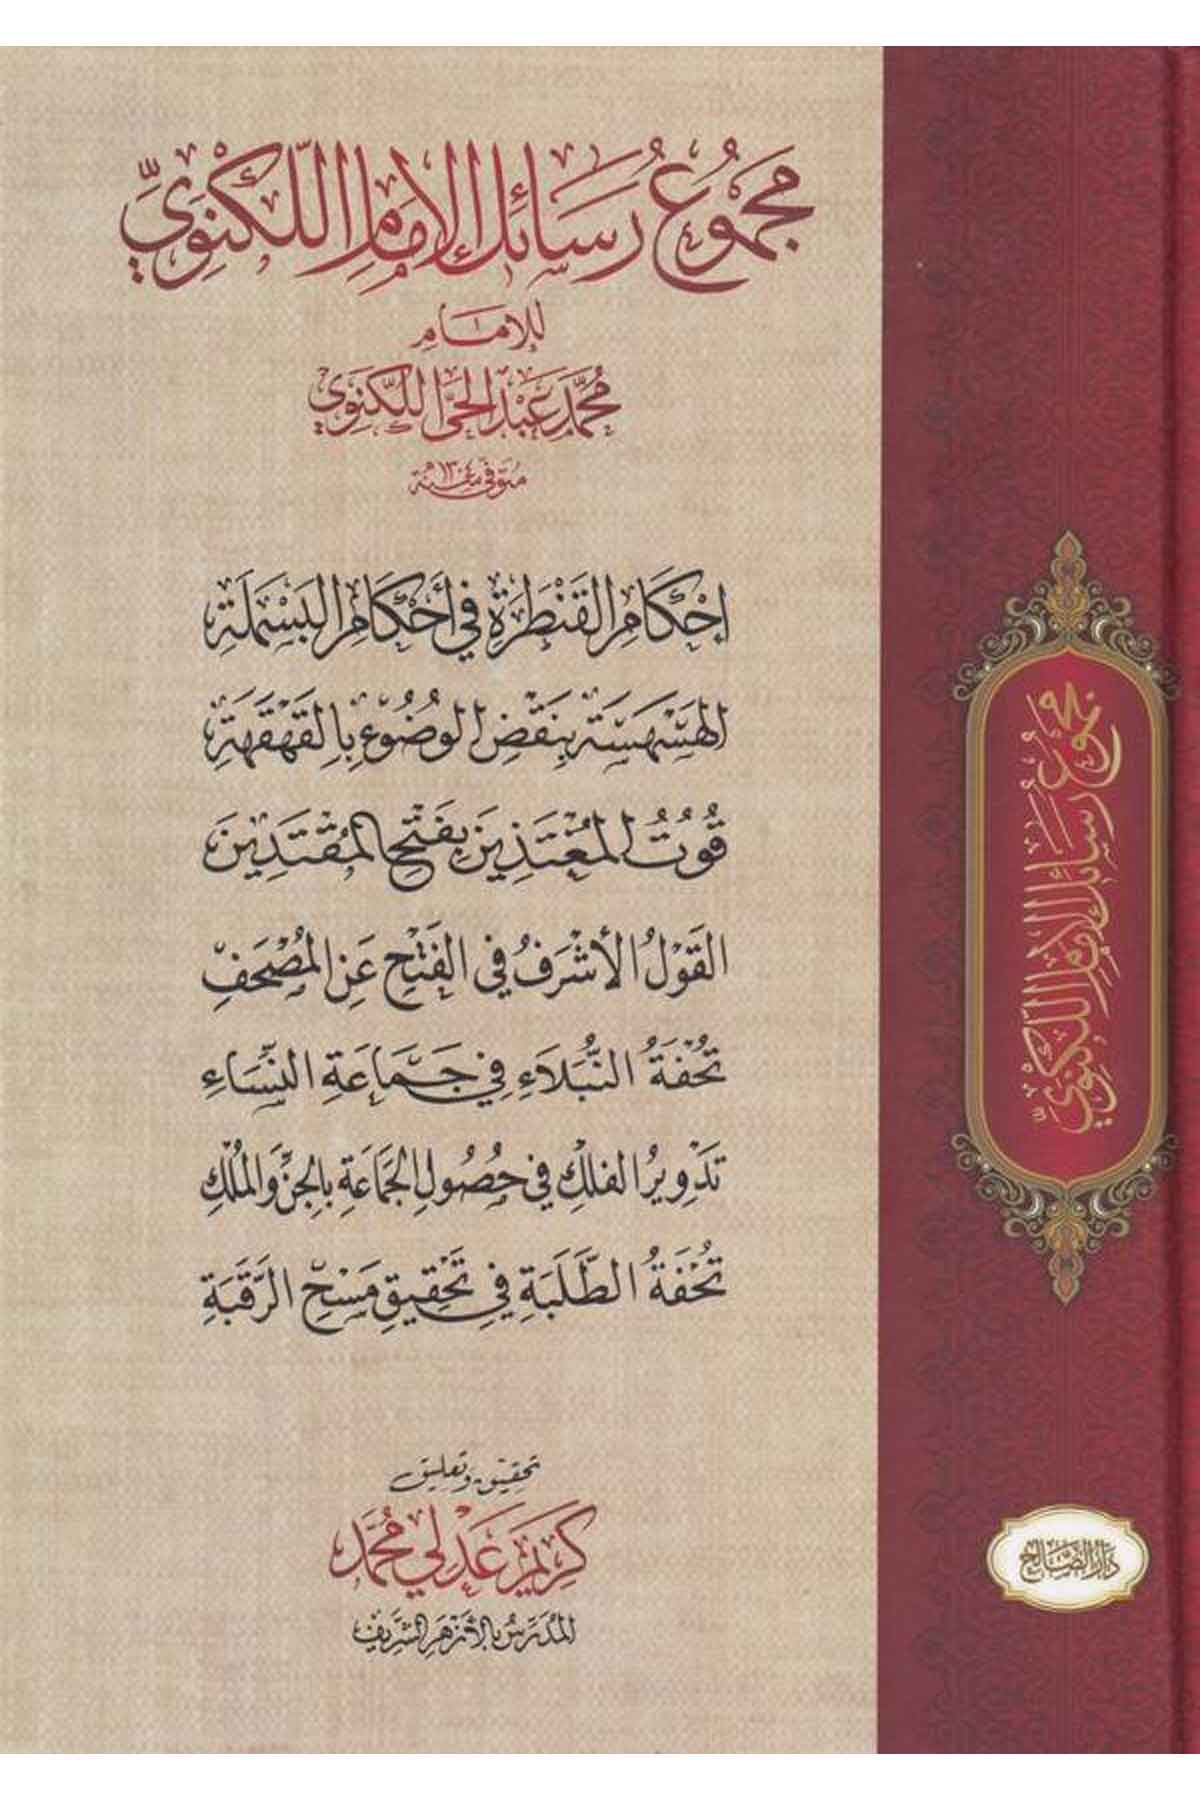 مَجْمُوعُ رَسَائِلِ الإِمَامِ اللَّكْنَوِيِّ
للإمَامِ
مُحَمَّد عَبْد الحَيّ اللَّكْنَوِي
متوفى سنة ١٣٠٤هـ
إحْكَامِ القَنْطَرَةِ فِي أَحْكَامِ البَسْمَلَةِ
الهَسْهَسَة بِنَقْضِ الوُضُوءِ بِالقَهْقَهَةِ
قُوتُ المُغْتَذِينَ بِفَتْحِ المُقْتَدِينَ
القَوْلُ الأشْرَفُ فِي الفَتْحِ عَنِ المُصْحَفِ
تُحْفَةُ النُّبَلَاءِ فِي جَمَاعَةِ النِّسَاءِ
تَدْوِيرُ الفَلَكِ فِي حُصُولِ الجَمَاعَةِ بِالجِنِّ وَالمَلَكِ
تُحْفَةُ الطَّلَبَةِ فِي تَحْقِيقِ مَسْحِ الرَّقَبَةِ
تحقيق وتعليق
كَرِيمْ عَدْلِي مُحَمَّد
المُدَرِسُ بِالأَزْهَرِ الشَّرِيفِ
مجموعُ رسائل الإمام اللكنويِّ
دَارُ الصَّالِح